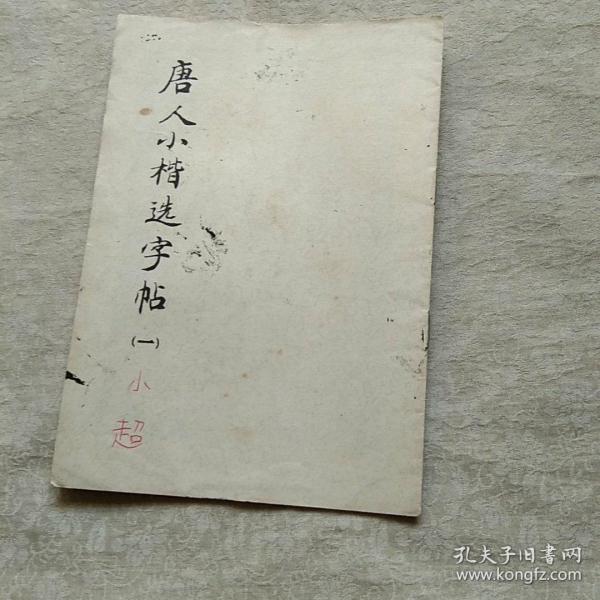 唐人小楷选字帖
(一)
小超
孔夫子旧書网
www.kongfz.com